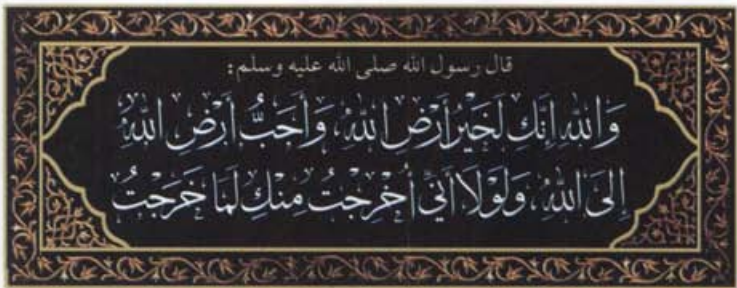 قال رسول الله صلى الله عليه وسلم:
وَاللهِ إِنَّكِ لَخَيْرُ أَرْضِ اللهِ، وَأَحَبُّ أَرْضِ اللهِ
إِلَى اللهِ، وَلَوْلَا أَنِّي أُخْرِجْتُ مِنْكِ لَمَا خَرَجْتُ